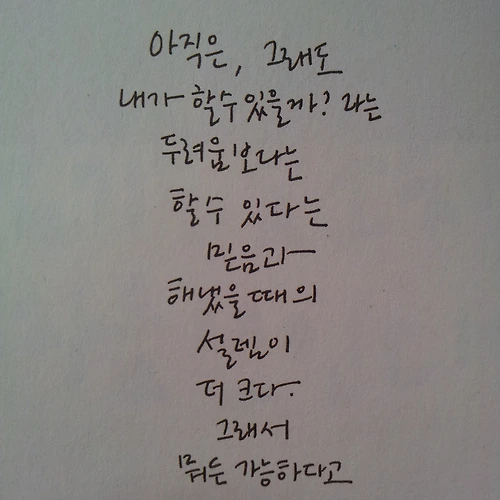 아직은, 그래도
내가 할수있을까? 라는
두려움보다는
할수 있다는
믿음과
해냈을때의
설렘이
더 크다.
그래서
뭐든 가능하다고